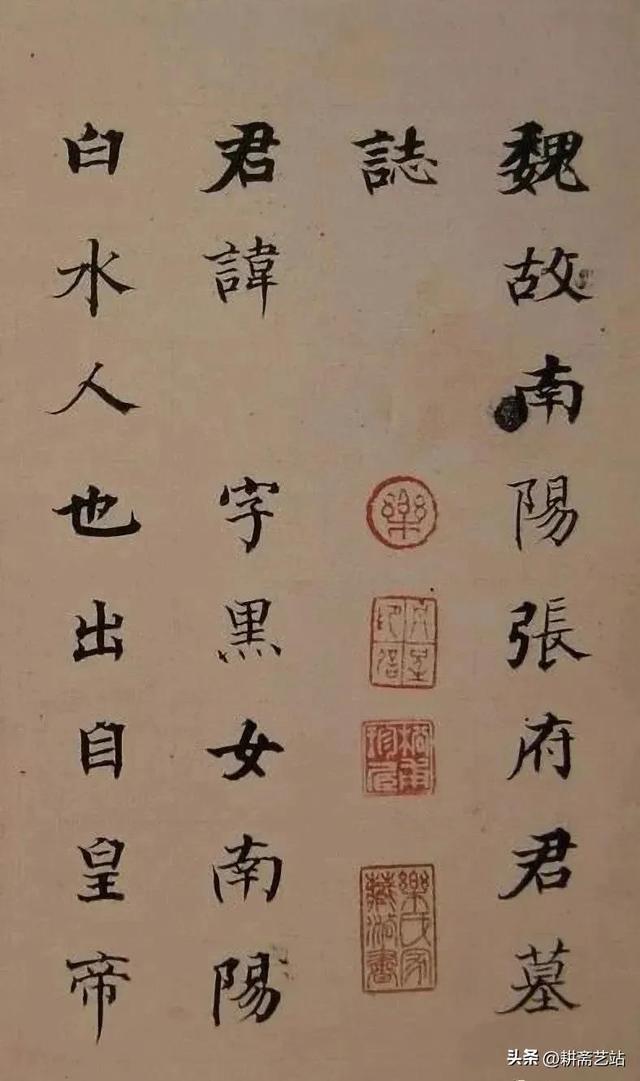 魏故南陽張府君墓
誌
君諱 字黑女南陽
白水人也出自皇帝
樂
樂氏家藏淤書
头条 @耕斋艺站